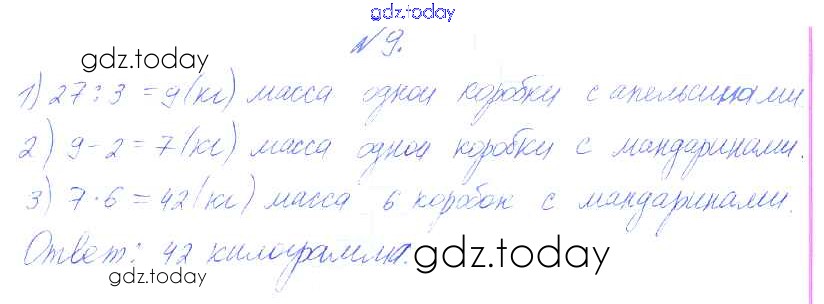 gdz.today
gdz.today
№9.
1) 27:3=9(кг) масса одной коробки с апельсинами.
2) 9-2=7(кг) масса одной коробки с мандаринами.
3) 7·6=42(кг) масса 6 коробок с мандаринами.
Ответ: 42 килограмма.
gdz.today
gdz.today